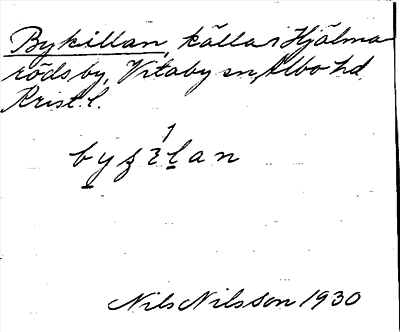 Bykillan, källa i Hjälma-
röds by, Vitaby sn, Albo hd
Krist. l.
Nils Nilsson 1930